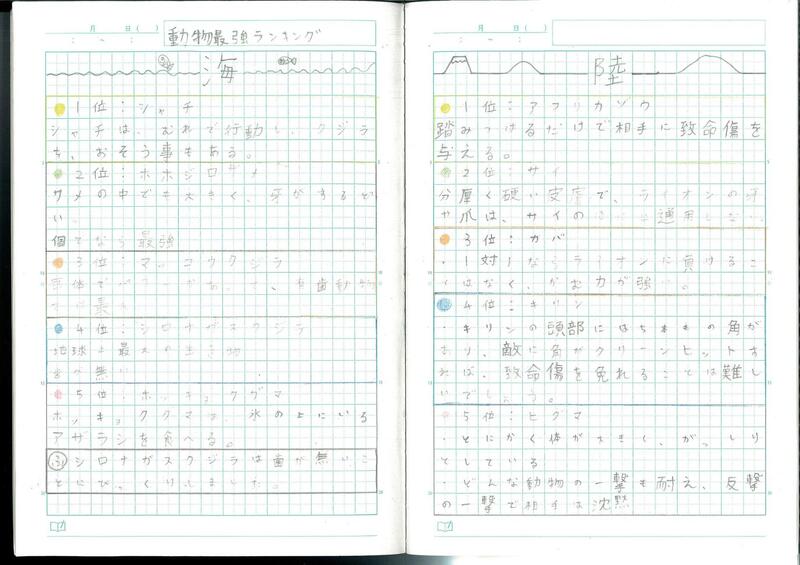 月 日( )
: ～ :
動物最強ランキング
海
1位：シャチ
シャチは、むれで行動し、クジラ
も、おそう事もある。
2位：ホホジロザメ
サメの中でも大きく、牙がするど
い。
個体なら最強
3位：マッコウクジラ
歯動物
最
4位：シロナガスクジラ
地球上最大の生き物
歯が無い
5位：ホッキョクグマ
ホッキョクグマは、氷の上にいる
アザラシを食べる。
ふ シロナガスクジラは歯が無いこ
とにびっくりしました。
月 日( )
: ～ :
陸
1位：アフリカゾウ
踏みつけるだけで相手に致命傷を
与える。
2位：サイ
分厚く硬い皮膚で、ライオンの牙
や爪は、サイの 通用しない
3位：カバ
・1対1ならライオンに負けるこ
とはなく、かむ力が強い。
4位：キリン
・キリンの頭部には5本もの角が
あり、敵に角がクリーンヒットす
れば、致命傷を免れることは難し
いでしょう。
5位：ヒグマ
・とにかく体が大きく、がっしり
としている
・どんな動物の一撃も耐え、反撃
の一撃で相手は沈黙